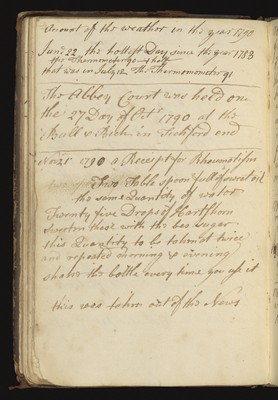 Account of the weather in the year 1790
June 22 the hottest Day since the year 1783
the Thermometer 90 & half
that was in July 12 The Thermomometer 91
The Abbey Court was held on
the 27 Day of Octr 1790 at the
Bull & Buch in Tichford end
Novr 21 1790 a Recept for Rheumatism
Two Table spoon full of sweet oil
the same Quantity of water
Twenty five Drops of Hartshorn
Sweeten these with the bes sugar
this Quantity to be taken at twice
and repeated morning & evening
shake the bottle every time you use it
this was taken out of the News